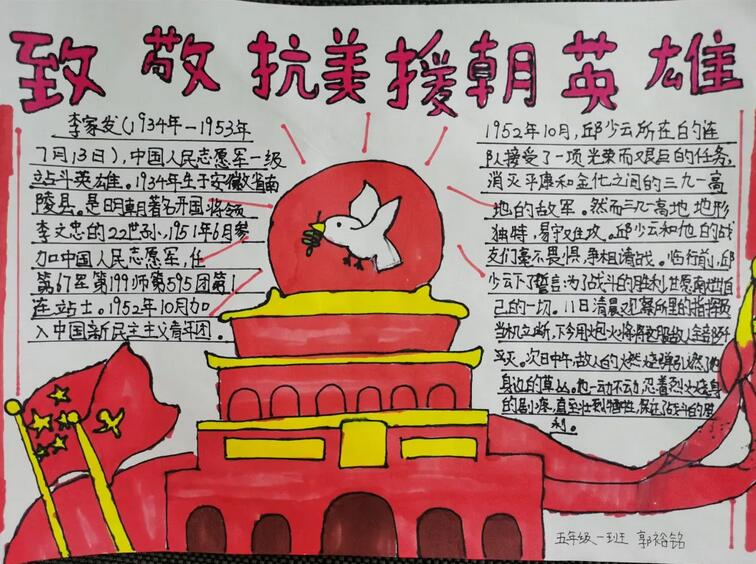 致敬抗美援朝英雄
李家发(1934年-1953年
7月13日),中国人民志愿军一级
战斗英雄。1934年生于安徽省南
陵县。是明朝著名开国将领
李文忠的22世孙,1951年6月参
加中国人民志愿军,任
第67军第199师第595团第1
连战士。1952年10月加
入中国新民主主义青年团。
1952年10月,邱少云所在的连
队接受了一项光荣而艰巨的任务,
消灭平康和金化之间的三九一高
地的敌军。然而三九一高地地形
独特,易守难攻。邱少云和他的战
友们毫不畏惧,争相请战。临行前,邱
少云下了誓言:为了战斗的胜利,甘愿献出自
己的一切。11日清晨观察所里的指挥员
当机立断,下令用炮火将将这股敌人全部歼
灭。次日中午,敌人的燃烧弹引燃了他
身边的草丛。他一动不动,忍着烈火烧身
的剧疼,直至壮烈牺牲,保住了战斗的胜
利。
五年级一班 郭裕铭